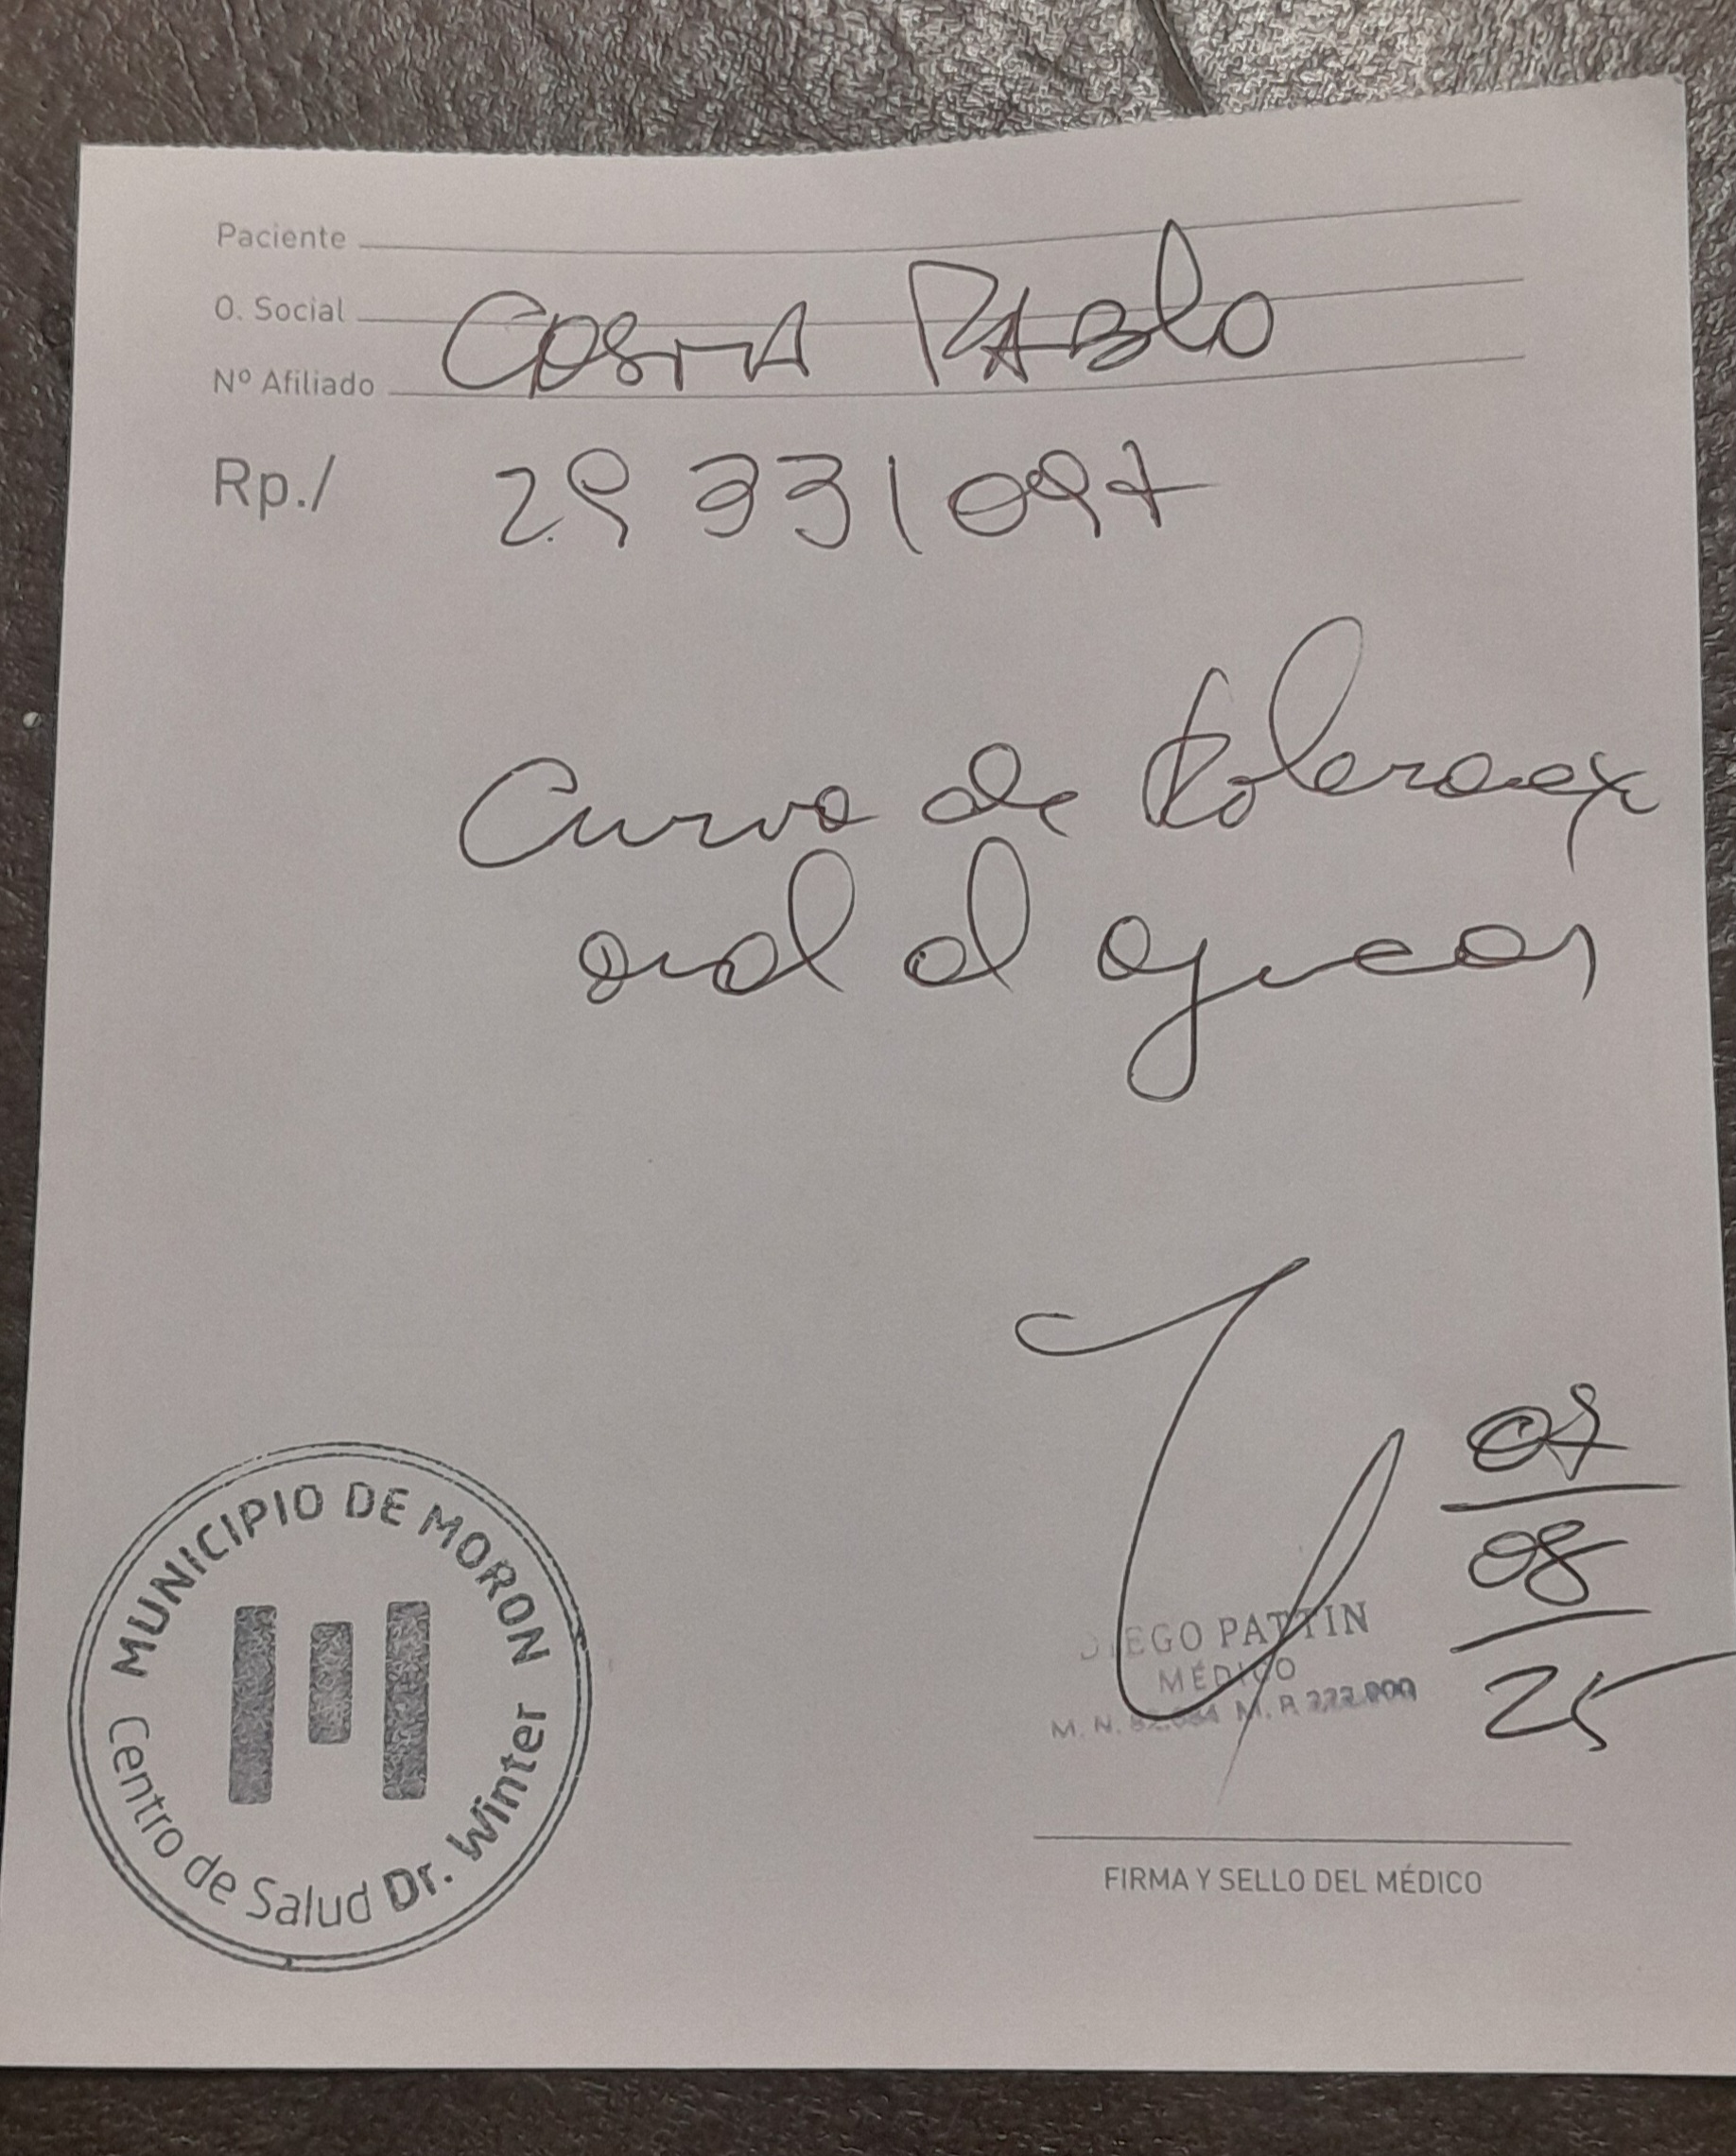 Paciente
O. Social
COSTA PABLO
Nº Afiliado
Rp./ 29 331 097
Curva de tolerancia
oral al azucar
07
08
25
DIEGO PATTIN
MÉDICO
M. N. M. P.
FIRMA Y SELLO DEL MÉDICO
MUNICIPIO DE MORON
Centro de Salud Dr. Winter